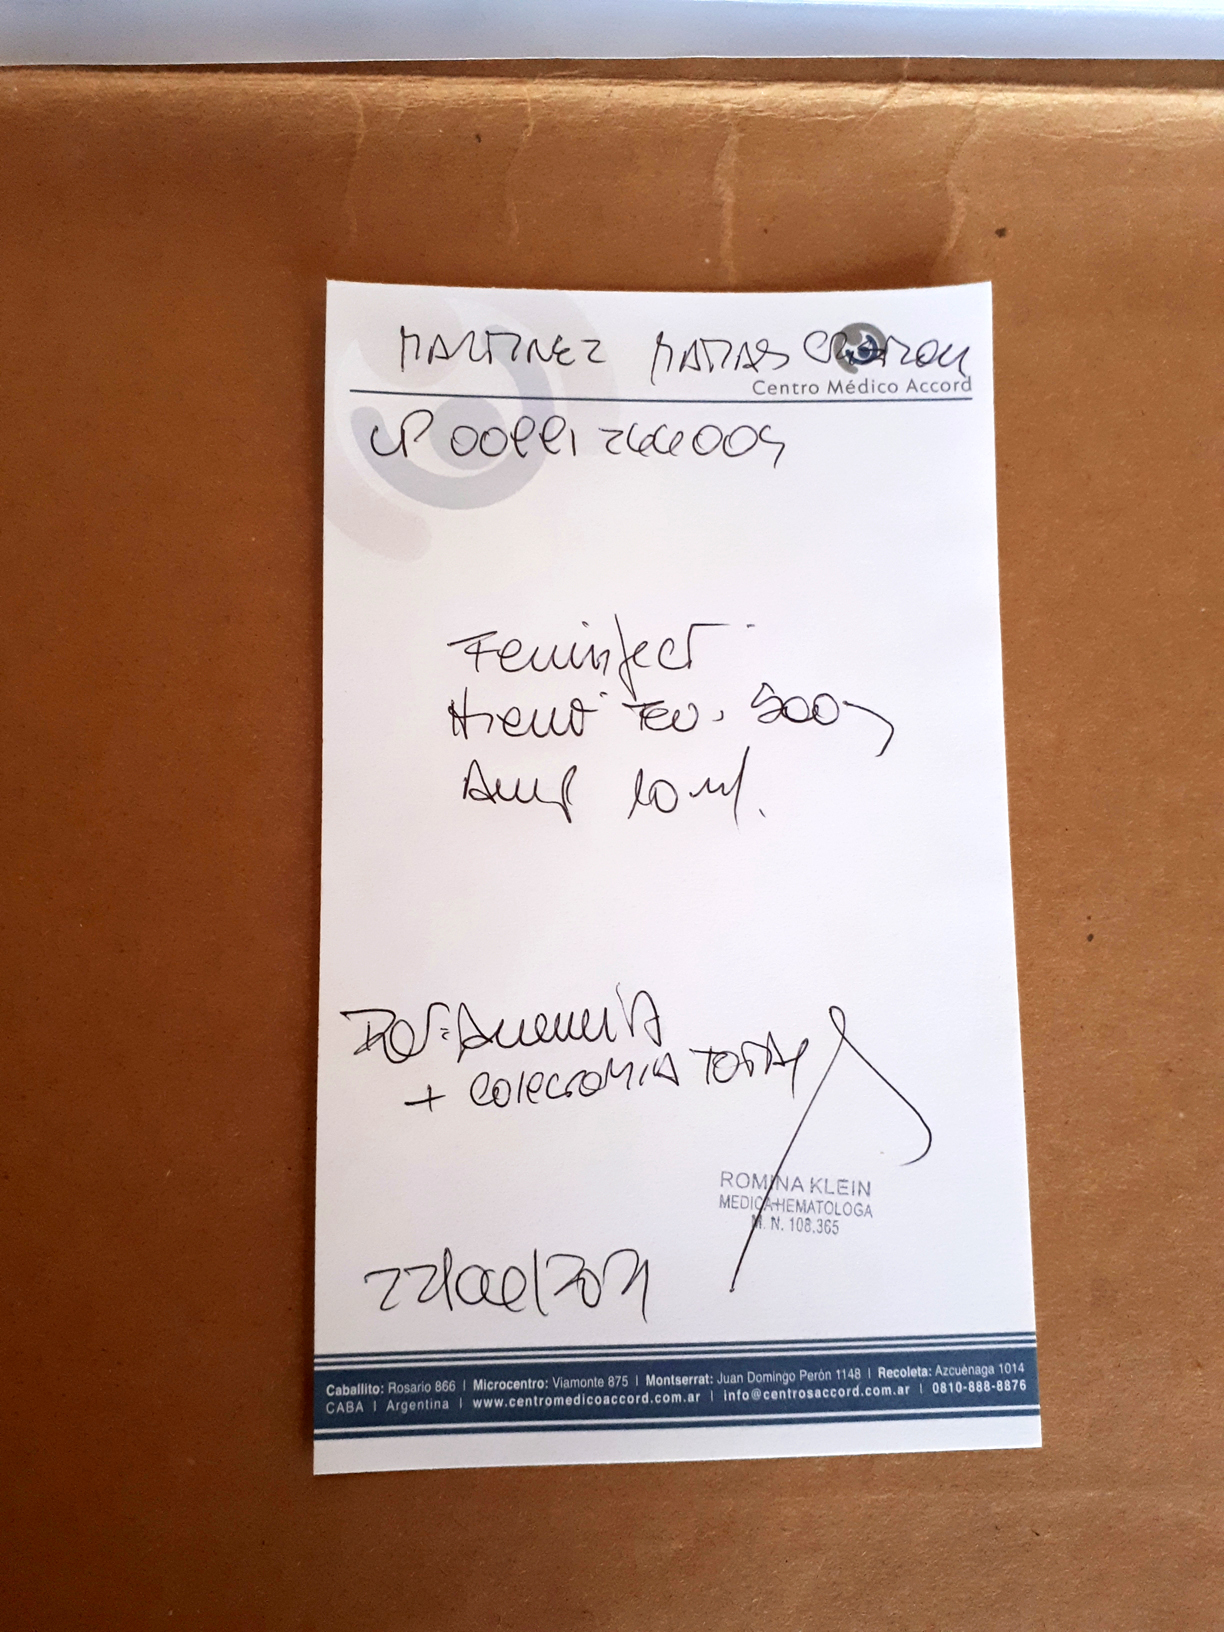 MARTINEZ MATIAS
Centro Médico Accord
Ferinject
Hierro 500
Amp 10 ml.
Dx: Anemia
+ colectomia total
ROMINA KLEIN
MEDICA HEMATOLOGA
M. N. 108.365
Caballito: Rosario 866 | Microcentro: Viamonte 875 | Montserrat: Juan Domingo Perón 1148 | Recoleta: Azcuénaga 1014
CABA | Argentina | www.centromedicoaccord.com.ar | info@centrosaccord.com.ar | 0810-888-8876